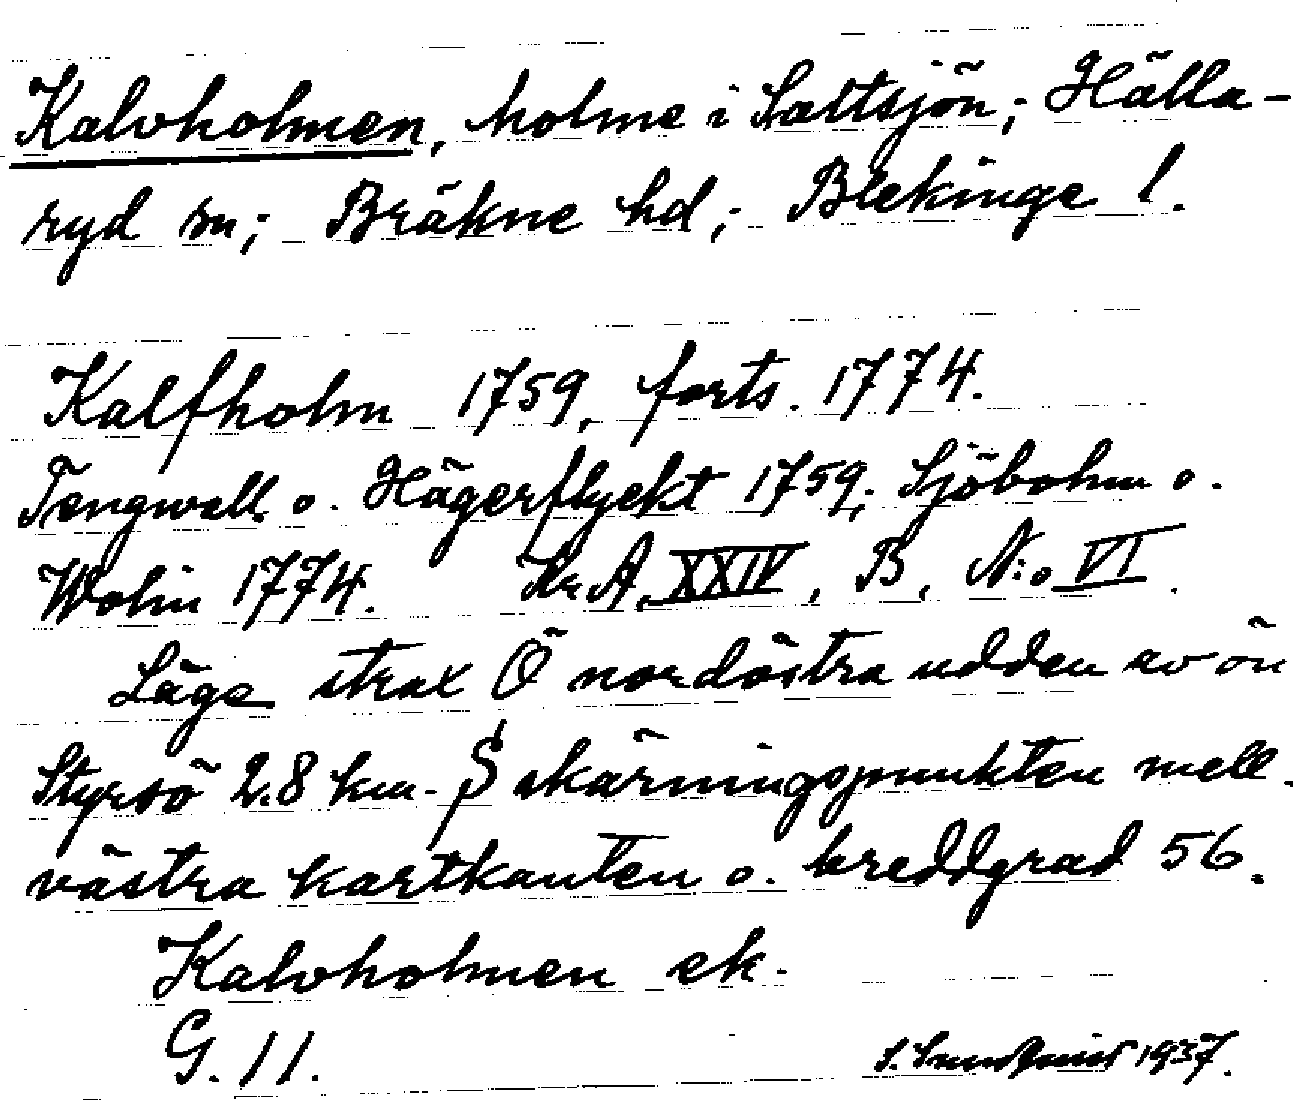 Kalvholmen, holme i Saltsjön; Hälla-
ryd sn; Bräkne hd; Blekinge l.
Kalfholm 1759, forts. 1774.
Tengwall. o. Hägerflyckt 1759; Sjöbohm o.
Wolin 1774. Kr. A. XXIV, B, N:o VI.
Läge strax Ö nordöstra udden av ön
Styrsö 2.8 km. S skärningspunkten mell.
västra kartkanten o. breddgrad 56.
Kalvholmen ek.
G. 11.
S. Sundquist 1937.